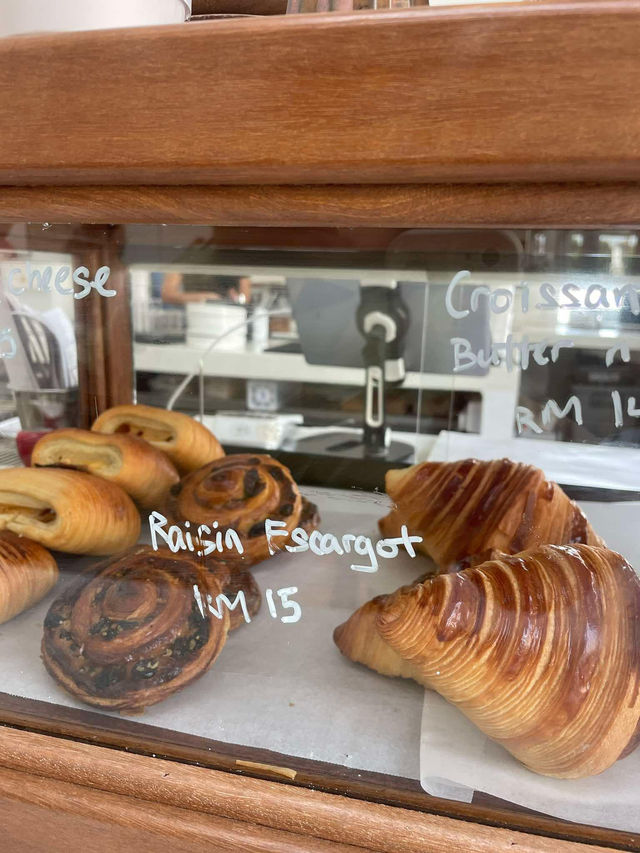 cheese
Croissan
Butter n
RM 14
Raisin Escargot
RM 15